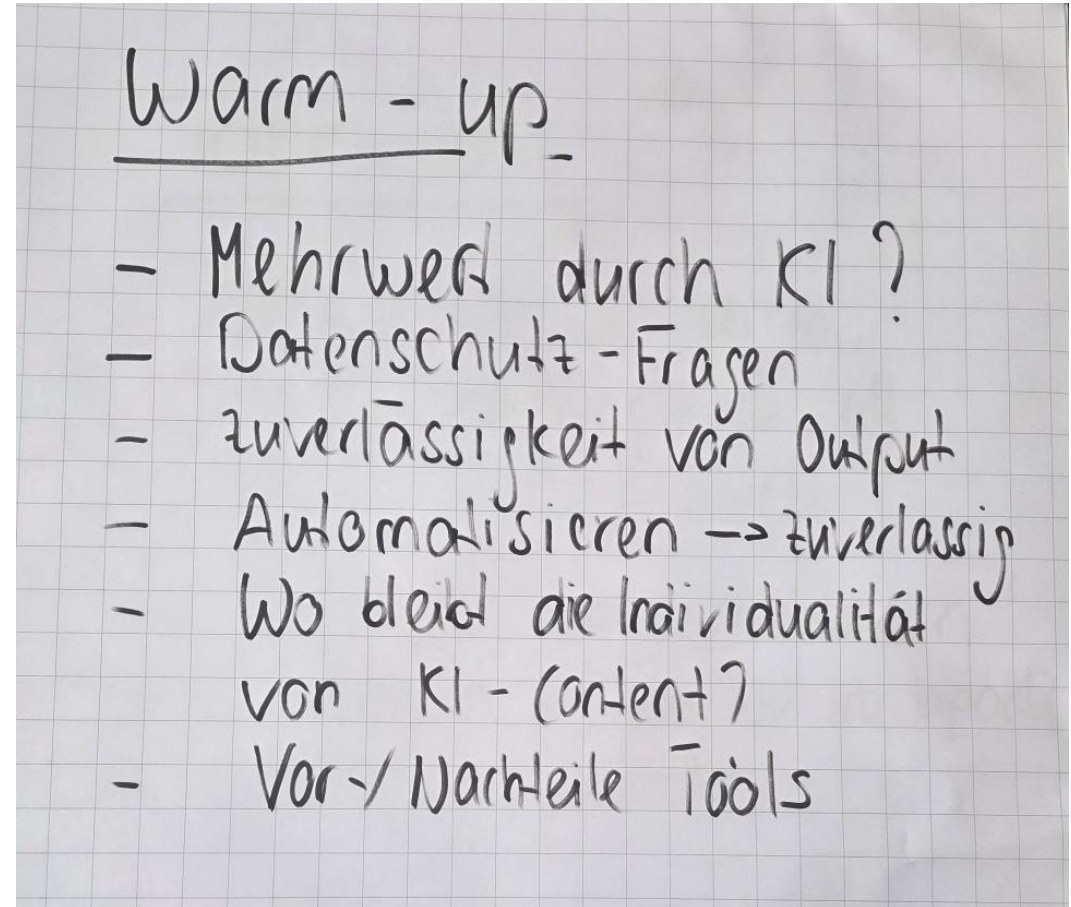 Warm - up
- Mehrwert durch KI?
- Datenschutz - Fragen
- Zuverlässigkeit von Output
- Automatisieren -> zuverlässig
- Wo bleibt die Individualität
von KI - Content?
- Vor-/Nachteile Tools